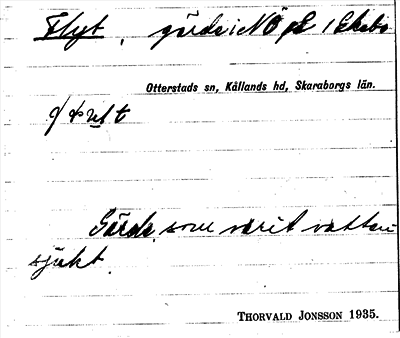 Flyt, gärde i NÖ på 1 Ekebo
Otterstads sn, Kållands hd, Skaraborgs län.
Gärde, som varit vatten-
sjukt.
THORVALD JONSSON 1935.